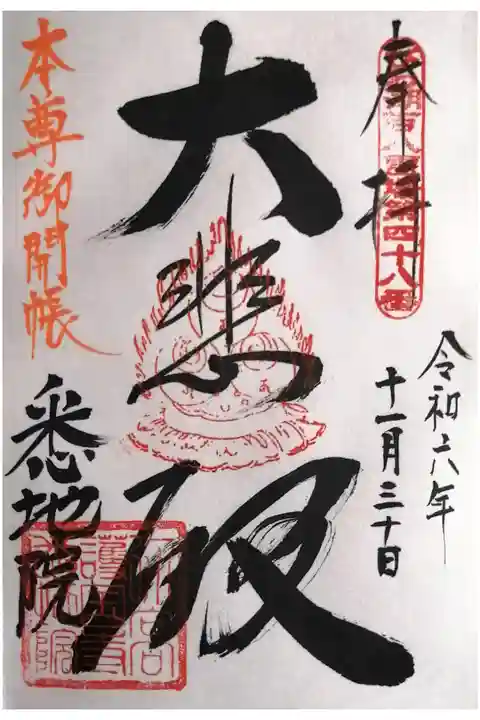 奉拝
百八霊場第四十八番
令和六年
十一月三十日
大悲殿
本尊御開帳
悉地院